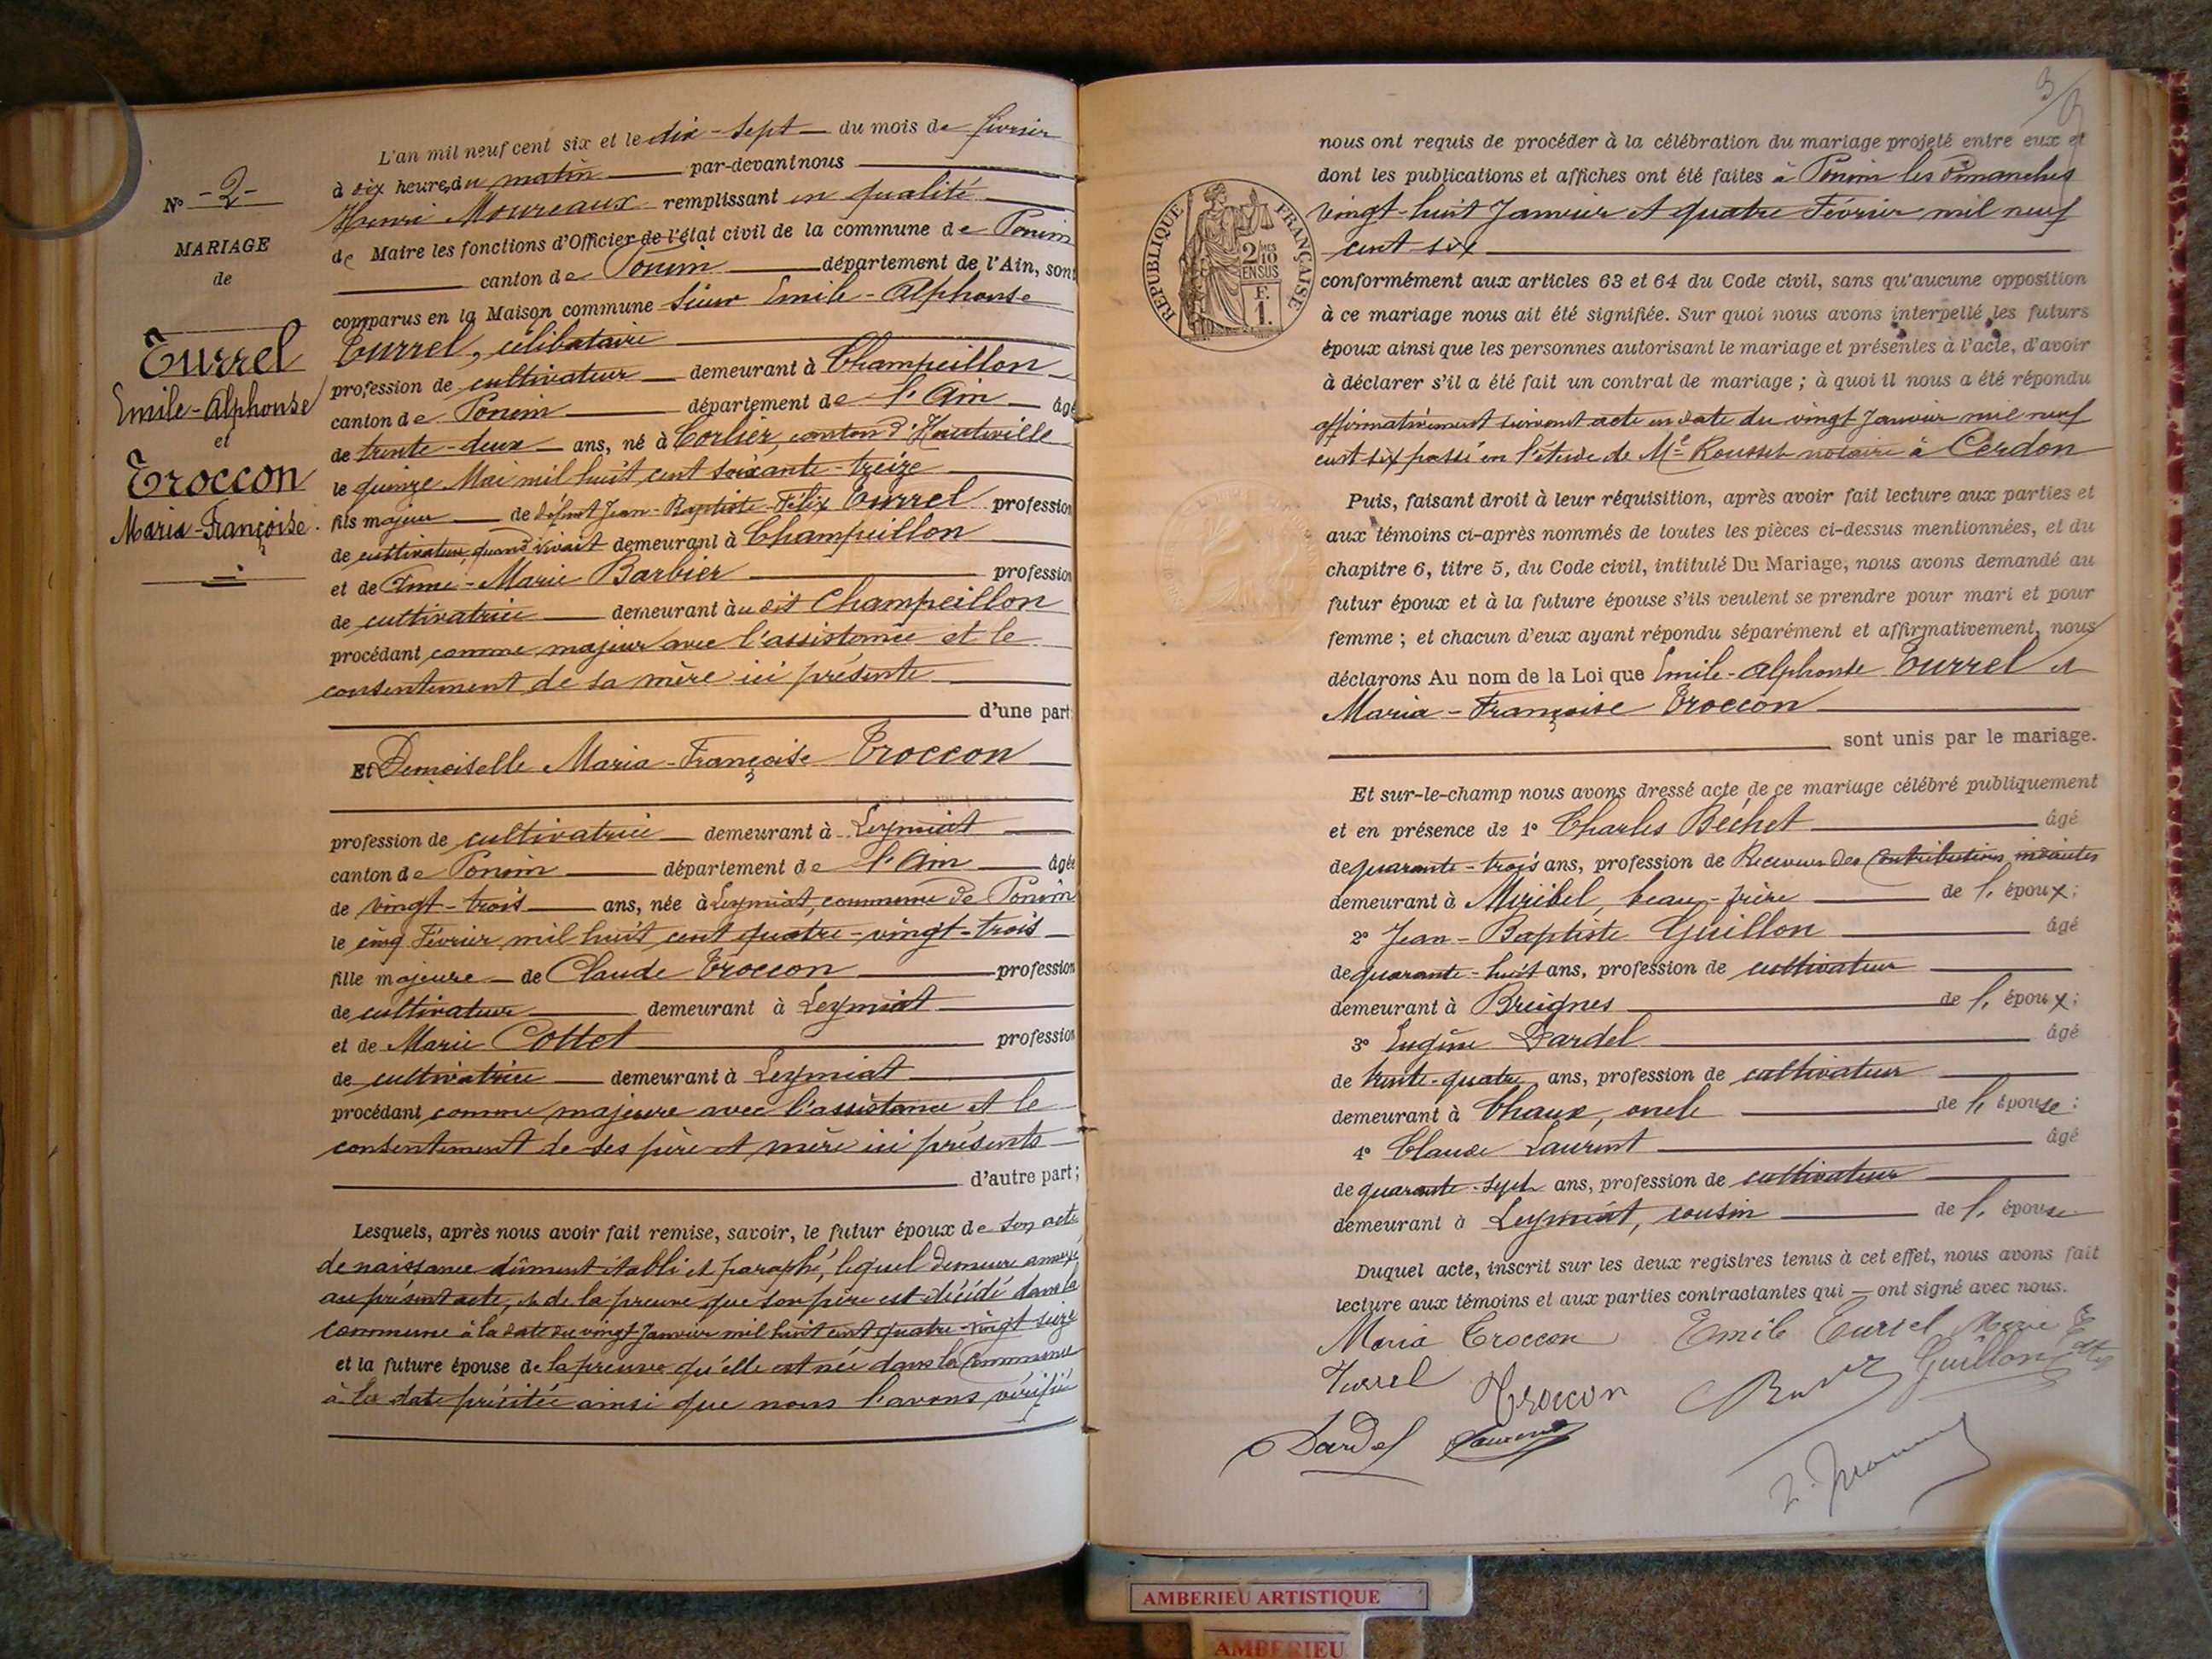 N° -2-
MARIAGE
de
Turrel
Emile-Alphonse
et
Troccon
Maria-Françoise.
L'an mil neuf cent six et le dix-sept du mois de février
à dix heures du matin par-devant nous
Henri Moureaux remplissant en qualité
de Maire les fonctions d'Officier de l'état civil de la commune de Poncin
canton de Poncin département de l'Ain, sont
comparus en la Maison commune Sieur Emile-Alphonse
Turrel, célibataire
profession de cultivateur demeurant à Champeillon
canton de Poncin département de l'Ain âgé
de trente-deux ans, né à Corlier, canton d'Hauteville
le quinze Mai mil huit cent soixante-treize
fils majeur de défunt Jean-Baptiste-Félix Turrel profession
de cultivateur, quand vivait demeurant à Champeillon
et de Anne-Marie Barbier profession
de cultivatrice demeurant au dit Champeillon
procédant comme majeur avec l'assistance et le
consentement de sa mère ici présente
d'une part
Et Demoiselle Maria-Françoise Troccon
profession de cultivatrice demeurant à Leymiat
canton de Poncin département de l'Ain âgée
de vingt-trois ans, née à Leymiat, commune de Poncin
le cinq Février mil huit cent quatre-vingt-trois
fille majeure de Claude Troccon profession
de cultivateur demeurant à Leymiat
et de Marie Cottet profession
de cultivatrice demeurant à Leymiat
procédant comme majeure avec l'assistance et le
consentement de ses père et mère ici présents
d'autre part;
Lesquels, après nous avoir fait remise, savoir, le futur époux de son acte
de naissance dûment établi et paraphé, lequel demeure annexé
au présent acte, et de la preuve que son père est décédé dans la
commune à la date du vingt Janvier mil huit cent quatre-vingt seize
et la future épouse de la preuve qu'elle est née dans la Commune
à la date précitée ainsi que nous l'avons vérifié
3
RÉPUBLIQUE FRANÇAISE
2/10
EN SUS
F.
1.
nous ont requis de procéder à la célébration du mariage projeté entre eux et
dont les publications et affiches ont été faites à Poncin les Dimanches
vingt-huit Janvier et quatre Février mil neuf
cent six
conformément aux articles 63 et 64 du Code civil, sans qu'aucune opposition
à ce mariage nous ait été signifiée. Sur quoi nous avons interpellé les futurs
époux ainsi que les personnes autorisant le mariage et présentes à l'acte, d'avoir
à déclarer s'il a été fait un contrat de mariage; à quoi il nous a été répondu
affirmativement suivant acte en date du vingt Janvier mil neuf
cent six passé en l'étude de Me Rousset notaire à Cerdon
Puis, faisant droit à leur réquisition, après avoir fait lecture aux parties et
aux témoins ci-après nommés de toutes les pièces ci-dessus mentionnées, et du
chapitre 6, titre 5, du Code civil, intitulé Du Mariage, nous avons demandé au
futur époux et à la future épouse s'ils veulent se prendre pour mari et pour
femme; et chacun d'eux ayant répondu séparément et affirmativement, nous
déclarons Au nom de la Loi que Emile-Alphonse Turrel et
Maria-Françoise Troccon
sont unis par le mariage.
Et sur-le-champ nous avons dressé acte de ce mariage célébré publiquement
et en présence de 1° Charles Béchet âgé
de quarante-trois ans, profession de Receveur des Contributions indirectes
demeurant à Miribel, beau-frère de l'époux;
2° Jean-Baptiste Guillon âgé
de quarante-huit ans, profession de cultivateur
demeurant à Breignes de l'époux;
3° Eugène Dardel âgé
de trente-quatre ans, profession de cultivateur
demeurant à Chaux, oncle de l'épouse;
4° Claude Laurent âgé
de quarante-sept ans, profession de cultivateur
demeurant à Leymiat, cousin de l'épouse
Duquel acte, inscrit sur les deux registres tenus à cet effet, nous avons fait
lecture aux témoins et aux parties contractantes qui ont signé avec nous.
Maria Troccon Emile Turrel
Turrel Troccon Guillon
Dardel Laurent
AMBERIEU ARTISTIQUE
AMBERIEU